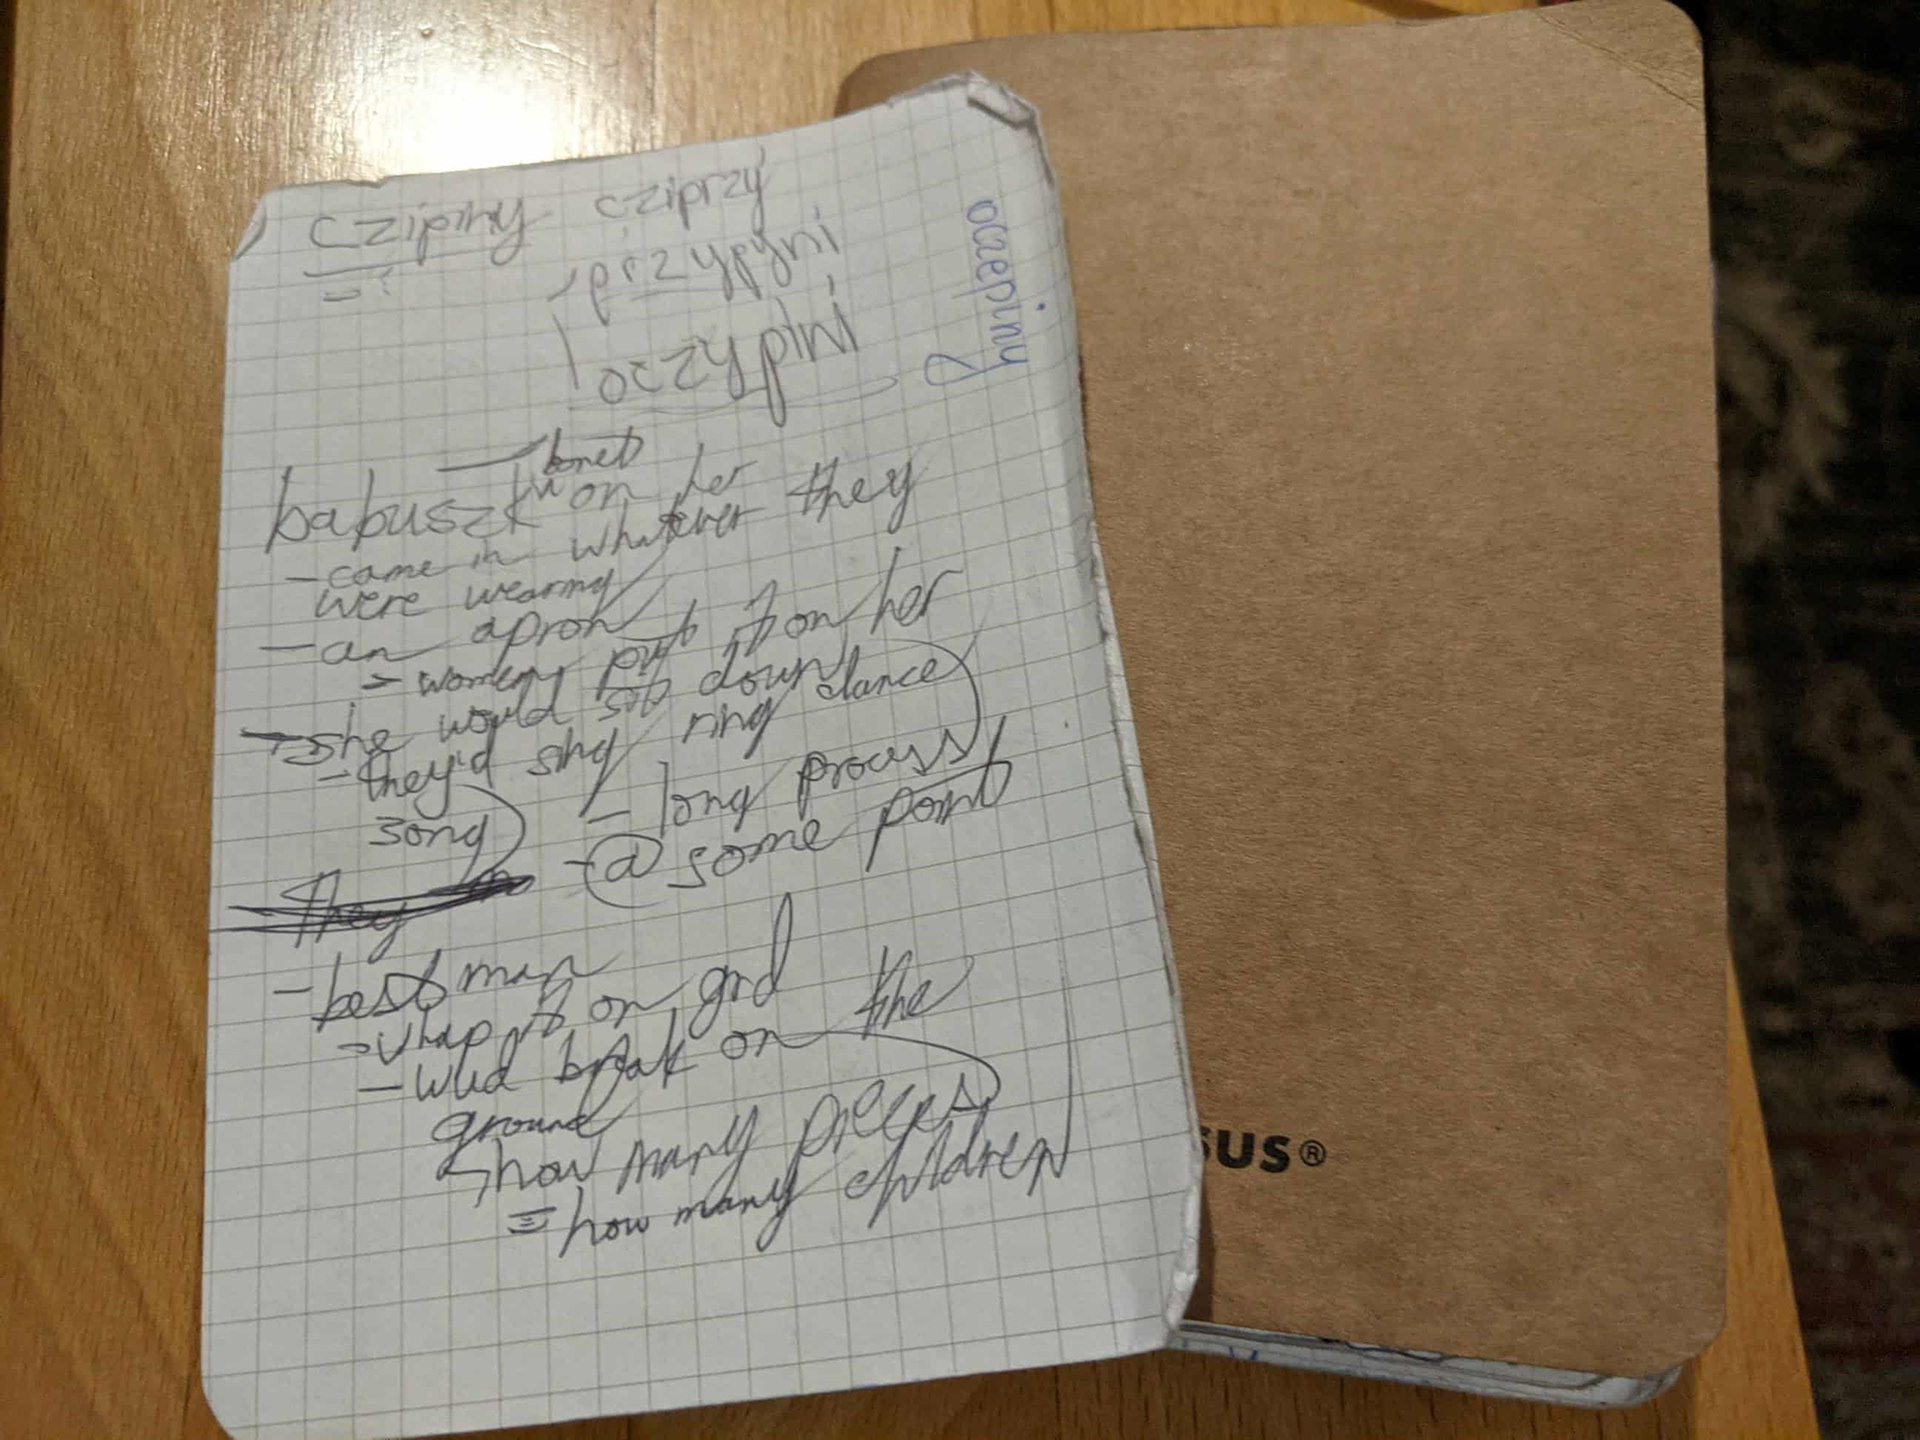 czipiny cziprzy
oczepiny
bonet
babuszk on her
- came in whatever they
were wearing
- an apron
= women put it on her
- she would sit down
- they'd sing ring dance
song
- long process
- @ some point
They
- best man
- wrap it on grd
- wud break on the
ground
how many pieces
= how many children
SUS®